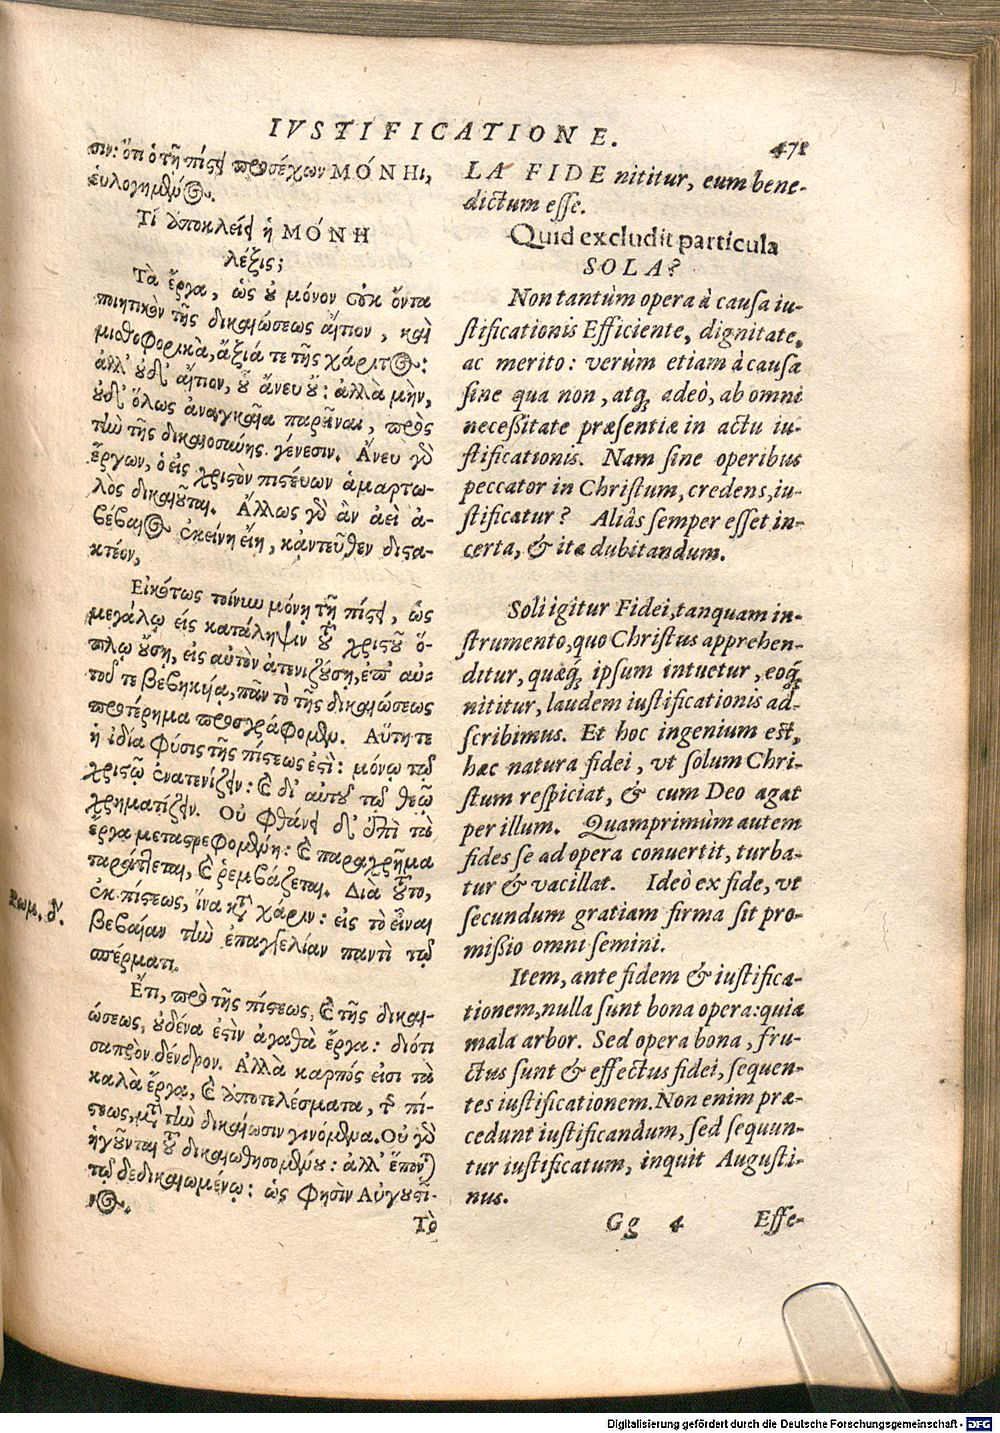 IVSTIFICATIONE.
471
σιν: ὅτι ὁ τῇ πίστει προσέχων ΜΌΝΗι,
εὐλογημένος.
Τί ἀποκλείει ἡ ΜΌΝΗ
λέξις;
Τὰ ἔργα, ὡς οὐ μόνον οὐκ ὄντα
ποιητικὸν τῆς δικαιώσεως αἴτιον, καὶ
μισθοφορικὰ, ἄξιά τε τῆς χάριτος:
ἀλλ' οὐδ' αἴτιον, οὗ ἄνευ οὔ: ἀλλὰ μὴν,
οὐδ' ὅλως ἀναγκαῖα παρεῖναι, πρὸς
τὴν τῆς δικαιοσύνης γένεσιν. Ἄνευ γὸ
ἔργων, ὁ εἰς χριστὸν πιστεύων ἁμαρτω-
λὸς δικαιοῦται. Ἄλλως γὸ ἂν ἀεὶ ἀ-
βέβαιος ἐκείνη εἴη, κἀντεῦθεν διστα-
κτέον,
Εἰκότως τοίνυν μόνῃ τῇ πίστει, ὡς
μεγάλῳ εἰς κατάληψιν τοῦ χριστοῦ ὅ-
πλῳ οὔσῃ, εἰς αὐτὸν ἀτενιζούσῃ, ἐπ' αὐ-
τοῦ τε βεβηκυίᾳ, πᾶν τὸ τῆς δικαιώσεως
προτέρημα προσγράφομεν. Αὕτη τε
ἡ ἰδία φύσις τῆς πίστεως ἐστὶ: μόνῳ τῷ
χριστῷ ἐνατενίζειν: καὶ δι' αὐτοῦ τῷ θεῷ
χρηματίζειν. Οὐ φθάνει δὲ ἐπὶ τὰ
ἔργα μεταστρεφομένη: καὶ παραχρῆμα
ταράττεται, καὶ ῥεμβάζεται. Διὰ τοῦτο,
ἐκ πίστεως, ἵνα κατὰ χάριν: εἰς τὸ εἶναι
βεβαίαν τὴν ἐπαγγελίαν παντὶ τῷ
σπέρματι.
Ῥωμ. δ'.
Ἔτι, πρὸ τῆς πίστεως, καὶ τῆς δικαι-
ώσεως, οὐδένα ἐστὶν ἀγαθὰ ἔργα: διότι
σαπρὸν δένδρον. Ἀλλὰ καρπός εἰσι τὰ
καλὰ ἔργα, καὶ ἀποτελέσματα, τῆς πί-
στεως, μετὰ τὴν δικαίωσιν γινόμενα. Οὐ γὸ
ἡγοῦνται τοῦ δικαιωθησομένου: ἀλλ' ἕπονται
τῷ δεδικαιωμένῳ: ὡς φησὶν Αὐγουστῖ-
νος.
Τὸ
LA FIDE nititur, eum bene-
dictum esse.
Quid excludit particula
SOLA?
Non tantùm opera à causa iu-
stificationis Efficiente, dignitate,
ac merito: verùm etiam à causa
sine qua non, atq; adeò, ab omni
necessitate præsentiæ in actu iu-
stificationis. Nam sine operibus
peccator in Christum, credens, iu-
stificatur? Aliâs semper esset in-
certa, & ita dubitandum.
Soli igitur Fidei, tanquam in-
strumento, quo Christus apprehen-
ditur, quæq; ipsum intuetur, eoq;
nititur, laudem iustificationis ad-
scribimus. Et hoc ingenium est,
hæc natura fidei, vt solum Chri-
stum respiciat, & cum Deo agat
per illum. Quamprimùm autem
fides se ad opera conuertit, turba-
tur & vacillat. Ideò ex fide, vt
secundum gratiam firma sit pro-
missio omni semini.
Item, ante fidem & iustifica-
tionem, nulla sunt bona opera: quia
mala arbor. Sed opera bona, fru-
ctus sunt & effectus fidei, sequen-
tes iustificationem. Non enim præ-
cedunt iustificandum, sed sequun-
tur iustificatum, inquit Augusti-
nus.
Gg 4
Effe-
Digitalisierung gefördert durch die Deutsche Forschungsgemeinschaft - DFG